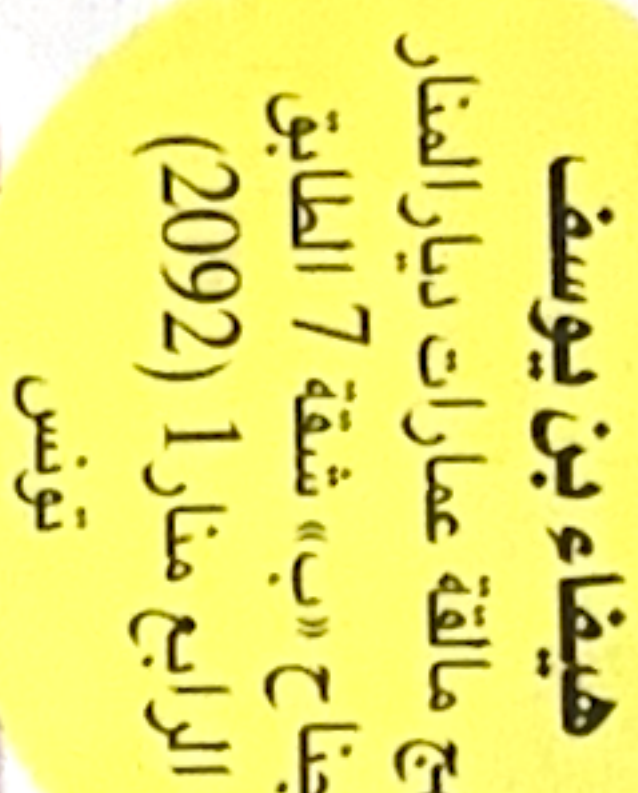 هيفاء بن يوسف
مالقة عمارات ديار المنار
جناح «ب» شقة 7 الطابق
الرابع منار 1 (2092)
تونس